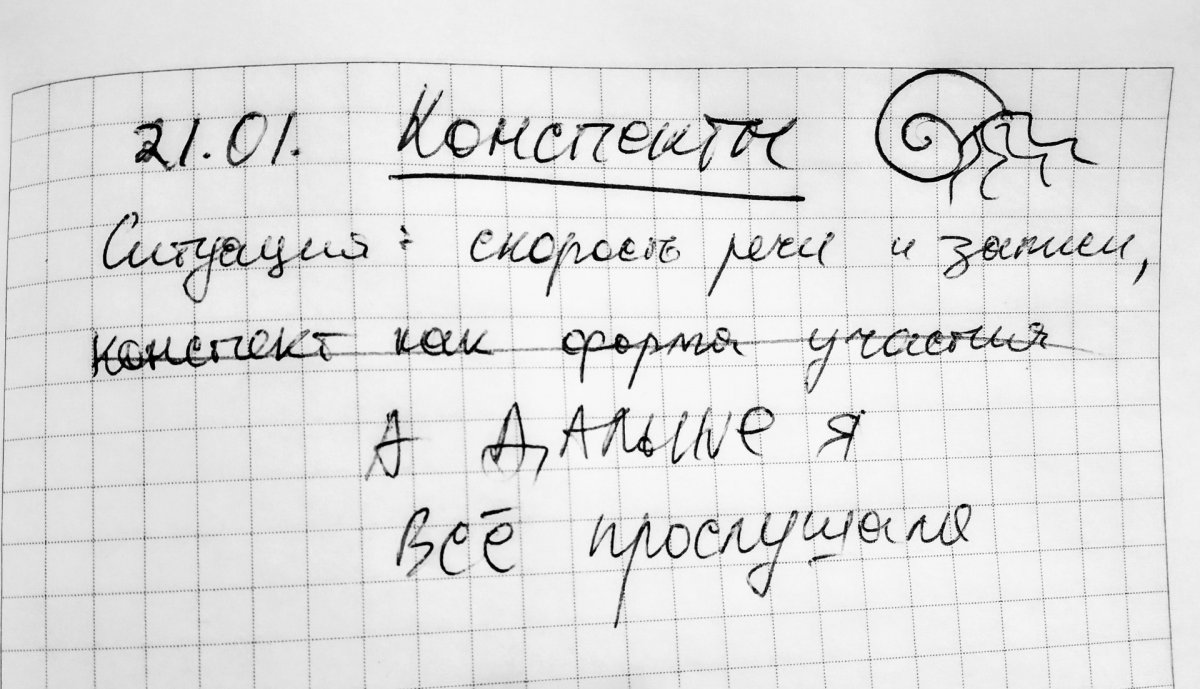 21.01. Конспекты
Ситуация: скорость речи и записи,
конспект как форма участия
А ДАЛЬШЕ я
Всё прослушала